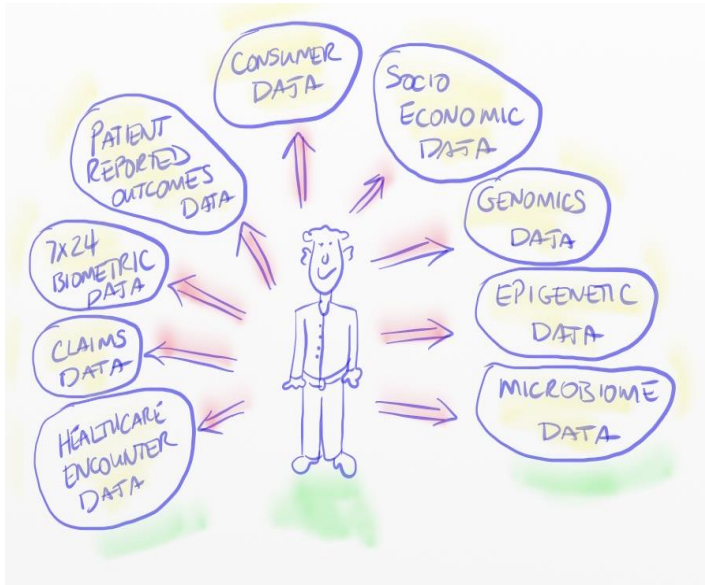 CONSUMER
DATA
SOCIO
ECONOMIC
DATA
PATIENT
REPORTED
OUTCOMES
DATA
GENOMICS
DATA
7X24
BIOMETRIC
DATA
EPIGENETIC
DATA
CLAIMS
DATA
MICROBIOME
DATA
HEALTHCARE
ENCOUNTER
DATA